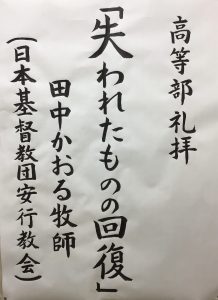 高等部礼拝
「失われたものの回復」
田中かおる牧師
(日本基督教団安行教会)